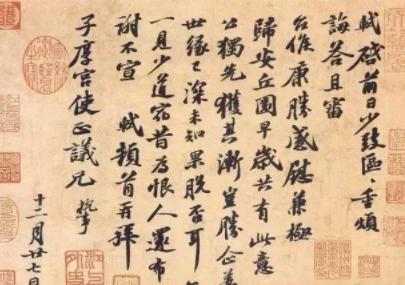 軾啓前日少致區〻重煩
誨答且審
台候康勝感慰兼極
歸安丘園早歲共有此意
公獨先獲其漸豈勝企羨
世緣已深未知果脫否耳
一見少道宿昔為恨人還布
謝不宣 軾頓首再拜
子厚宮使正議兄 執事
十二月廿七日